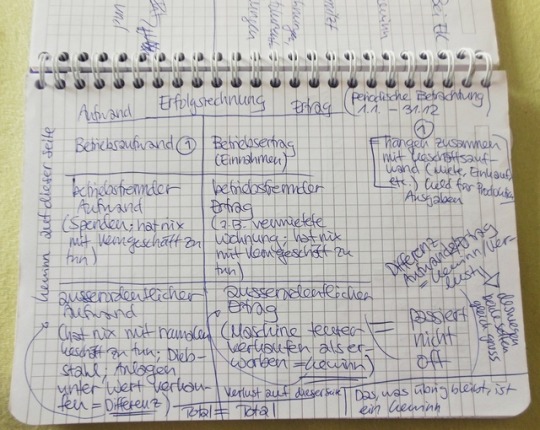 Aufwand Erfolgsrechnung Ertrag (periodische Betrachtung)
1.1. - 31.12
Gewinn auf dieser Seite
Betriebsaufwand ①
Betriebsertrag
(Einnahmen)
①
hängen zusammen
mit Geschäftsauf-
wand (Miete, Einkauf
etc.) Geld für
Ausgaben
betriebsfremder
Aufwand
(Spenden; hat nix
mit Kerngeschäft zu
tun)
betriebsfremder
Ertrag
(z.B. vermietete
Wohnung; hat nix
mit Kerngeschäft zu
tun)
Differenz
Aufwand & Ertrag
= Gewinn/Ver-
lust
deswegen
beide Seiten
gleich gross
ausserordentlicher
Aufwand
(hat nix mit normalem
Geschäft zu tun; Dieb-
stahl; Anlagen
unter Wert verkau-
fen = Differenz)
ausserordentlicher
Ertrag
(Maschine teurer
verkaufen als er-
worben = Gewinn)
= passiert
nicht
oft
Verlust auf dieser Seite
Total = Total
Das, was übrig bleibt, ist
ein Gewinn